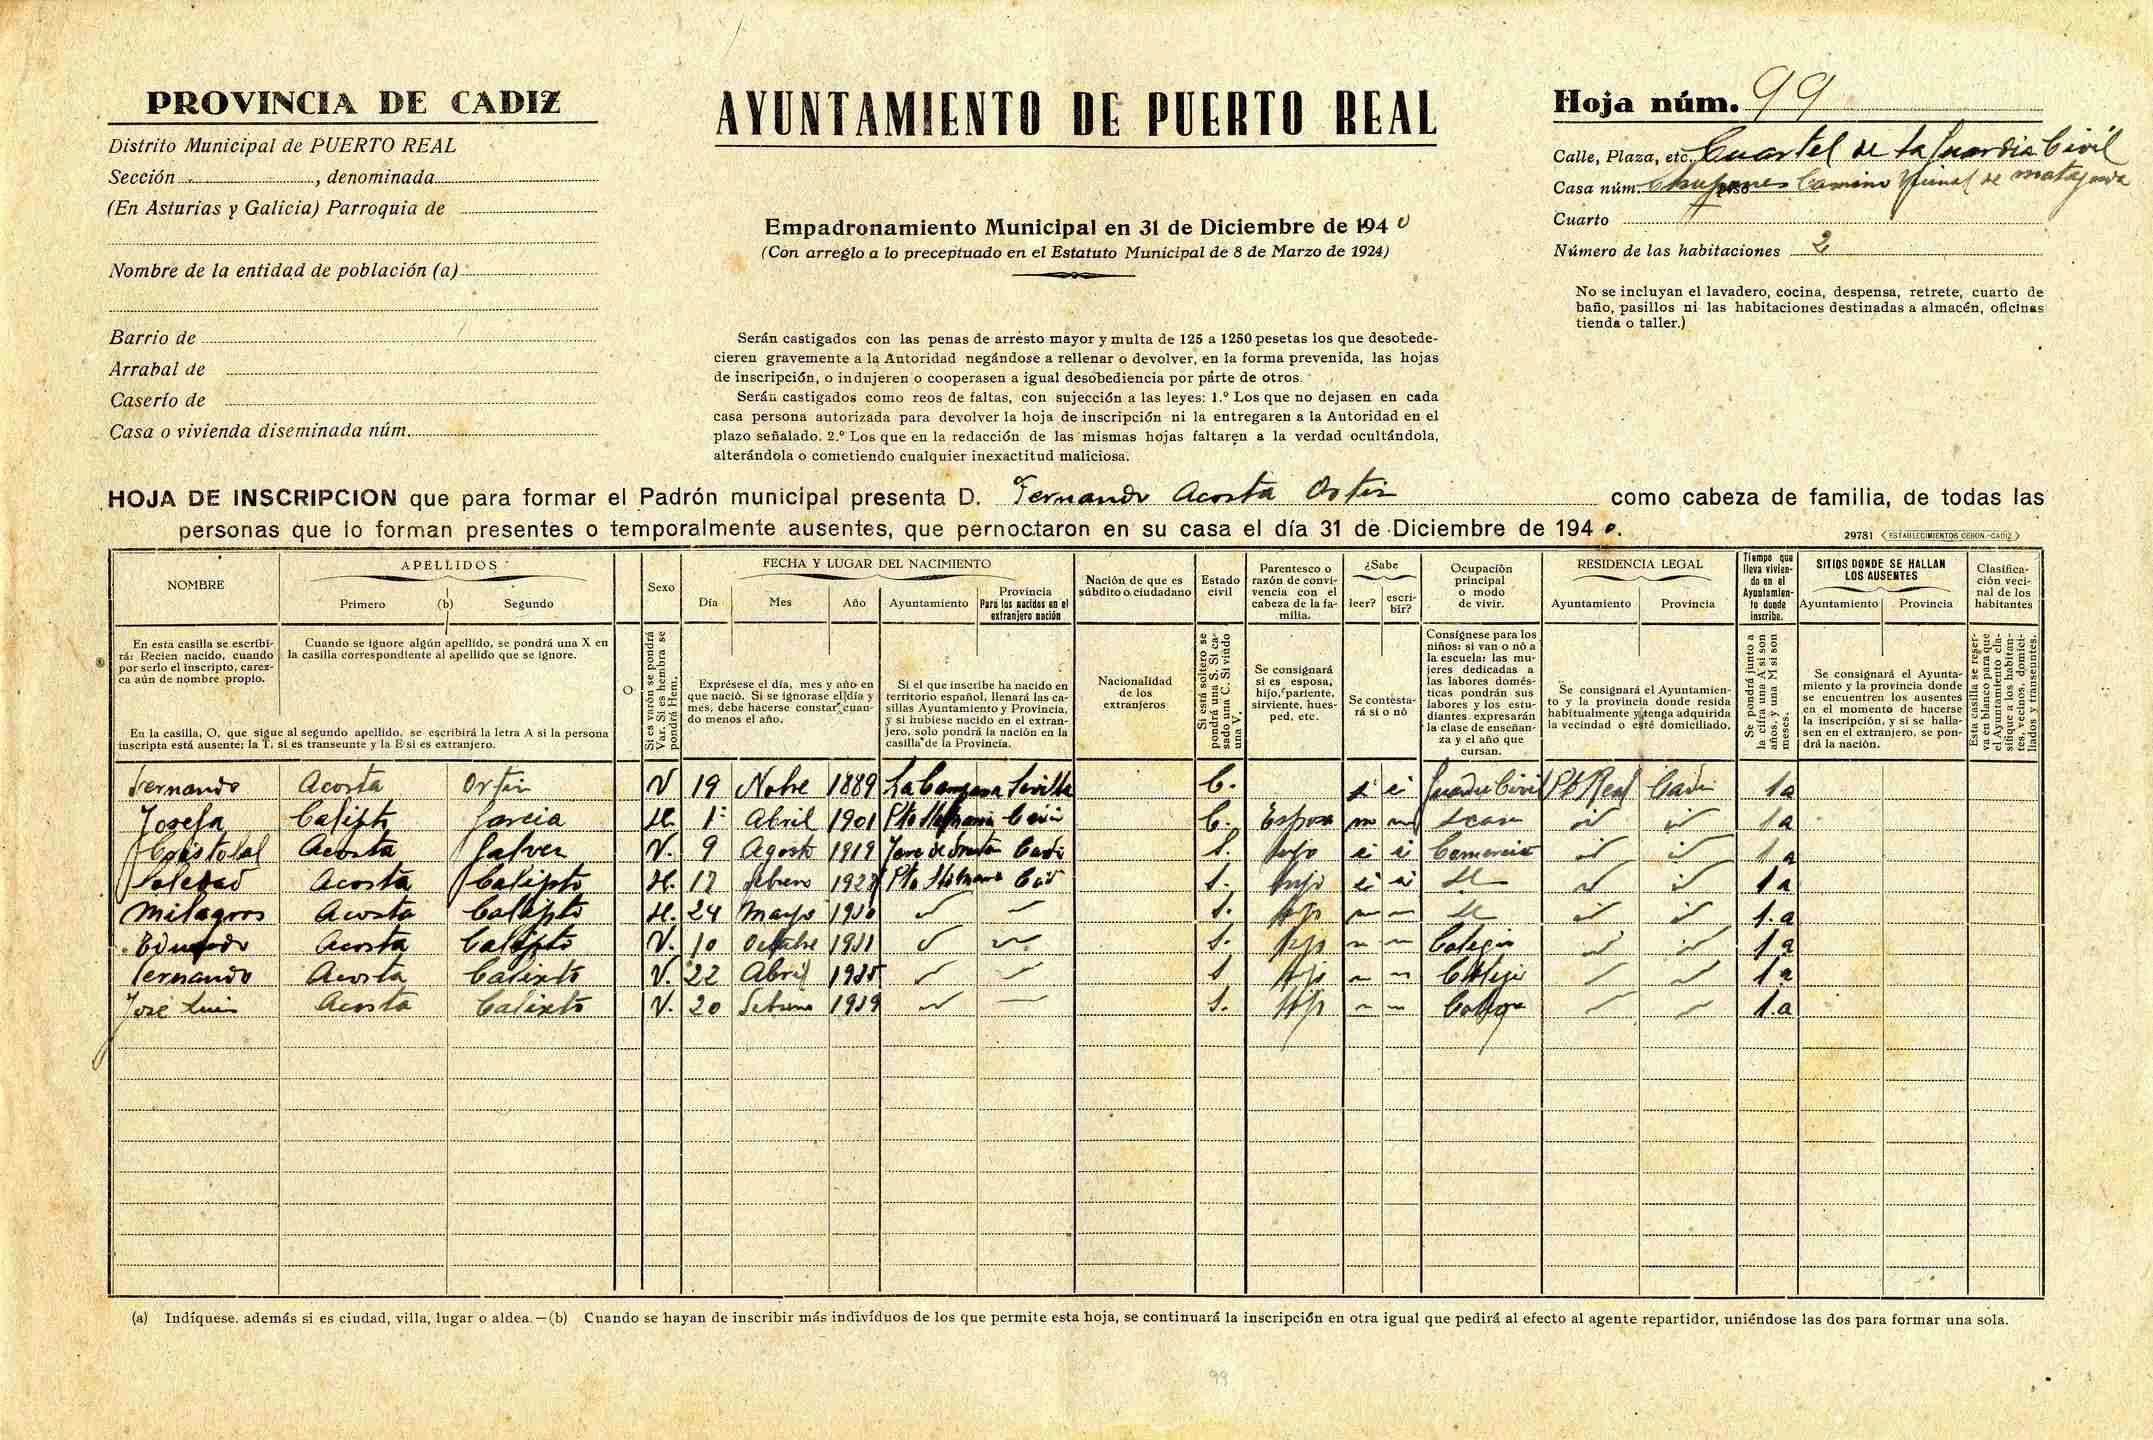 PROVINCIA DE CADIZ
Distrito Municipal de PUERTO REAL
Sección , denominada
(En Asturias y Galicia) Parroquia de
Nombre de la entidad de población (a)
Barrio de
Arrabal de
Caserío de
Casa o vivienda diseminada núm.
AYUNTAMIENTO DE PUERTO REAL
Empadronamiento Municipal en 31 de Diciembre de 1940
(Con arreglo a lo preceptuado en el Estatuto Municipal de 8 de Marzo de 1924)
Serán castigados con las penas de arresto mayor y multa de 125 a 1250 pesetas los que desobede-
cieren gravemente a la Autoridad negándose a rellenar o devolver, en la forma prevenida, las hojas
de inscripción, o indujeren o cooperasen a igual desobediencia por parte de otros.
Serán castigados como reos de faltas, con sujección a las leyes: 1.º Los que no dejasen en cada
casa persona autorizada para devolver la hoja de inscripción ni la entregaren a la Autoridad en el
plazo señalado. 2.º Los que en la redacción de las mismas hojas faltaren a la verdad ocultándola,
alterándola o cometiendo cualquier inexactitud maliciosa.
Hoja núm. 99
Calle, Plaza, etc. Cuartel de la Guardia Civil
Casa núm. Camino de matagorda
Cuarto
Número de las habitaciones 2
No se incluyan el lavadero, cocina, despensa, retrete, cuarto de
baño, pasillos ni las habitaciones destinadas a almacén, oficinas
tienda o taller.)
HOJA DE INSCRIPCION que para formar el Padrón municipal presenta D. Fernando Acosta Ortiz como cabeza de familia, de todas las
personas que lo forman presentes o temporalmente ausentes, que pernoctaron en su casa el día 31 de Diciembre de 1940.
29781 ESTABLECIMIENTOS CERON.-CADIZ
NOMBRE
En esta casilla se escribi-
rá: Recien nacido, cuando
por serlo el inscripto, carez-
ca aún de nombre propio.
APELLIDOS
Primero (b) Segundo
Cuando se ignore algún apellido, se pondrá una X en
la casilla correspondiente al apellido que se ignore.
En la casilla, O, que sigue al segundo apellido, se escribirá la letra A si la persona
inscripta está ausente: la T, si es transeunte y la E si es extranjero.
O
Sexo
Si es varón se pondrá
Var. Si es hembra se
pondrá Hem.
FECHA Y LUGAR DEL NACIMIENTO
Día Mes Año Ayuntamiento
Provincia
Para los nacidos en el
extranjero nación
Exprésese el día, mes y año en
que nació. Si se ignorase el día y
mes, debe hacerse constar cuan-
do menos el año.
Si el que inscribe ha nacido en
territorio español, llenará las ca-
sillas Ayuntamiento y Provincia,
y si hubiese nacido en el extran-
jero, solo pondrá la nación en la
casilla de la Provincia.
Nación de que es
súbdito o ciudadano
Nacionalidad
de los
extranjeros
Estado
civil
Si está soltero se
pondrá una S. Si ca-
sado una C. Si viudo
una V.
Parentesco o
razón de convi-
vencia con el
cabeza de la fa-
milia.
Se consignará
si es esposa,
hijo, pariente,
sirviente, hues-
ped, etc.
¿Sabe
leer? escri-
bir?
Se contesta-
rá si o nó
Ocupación
principal
o modo
de vivir.
Consígnese para los
niños: si van o nó a
la escuela: las mu-
jeres dedicadas a
las labores domés-
ticas pondrán sus
labores y los estu-
diantes expresarán
la clase de enseñan-
za y el año que
cursan.
RESIDENCIA LEGAL
Ayuntamiento Provincia
Se consignará el Ayuntamien-
to y la provincia donde resida
habitualmente y tenga adquirida
la vecindad o esté domiciliado.
Tiempo que
lleva vivien-
do en el
Ayuntamien-
to donde
inscribe.
Se pondrá junto a
la cifra una A si son
años, y una M si son
meses.
SITIOS DONDE SE HALLAN
LOS AUSENTES
Ayuntamiento Provincia
Se consignará el Ayunta-
miento y la provincia donde
se encuentren los ausentes
en el momento de hacerse
la inscripción, y si se halla-
sen en el extranjero, se pon-
drá la nación.
Clasifica-
ción veci-
nal de los
habitantes
Esta casilla se reser-
va en blanco para que
el Ayuntamiento cla-
sifique a los habitan-
tes, vecinos, domici-
liados y transeuntes.
Fernando Acosta Ortiz V 19 Nobre 1889 La Campana Sevilla C. si si Guardia Civil Pto Real Cadi 1a
Josefa Calixto Garcia H. 1º Abril 1901 Pto Sta Maria Cadi C. Esposa no no S casa id id 1a
Cristobal Acosta Galvez V. 9 Agosto 1919 Jerez de Frontera Cadi S. hijo si si Comercio id id 1a
Soledad Acosta Calixto H. 12 Febrero Pto Sta Maria Cad S. hija si si id id 1a
Milagros Acosta Calixto H. 24 Mayo 1930 S. hija id id 1.a
Eduardo Acosta Calixto V. 10 Octubre 1931 S. hijo Colegio 1a
Fernando Acosta Calixto V. 22 Abril 1935 S hijo Colegi 1a
José Luis Acosta Calixto V. 20 Febrero 1939 S. hijo 1.a
(a) Indíquese. además si es ciudad, villa, lugar o aldea.—(b) Cuando se hayan de inscribir más indivíduos de los que permite esta hoja, se continuará la inscripción en otra igual que pedirá al efecto al agente repartidor, uniéndose las dos para formar una sola.
99